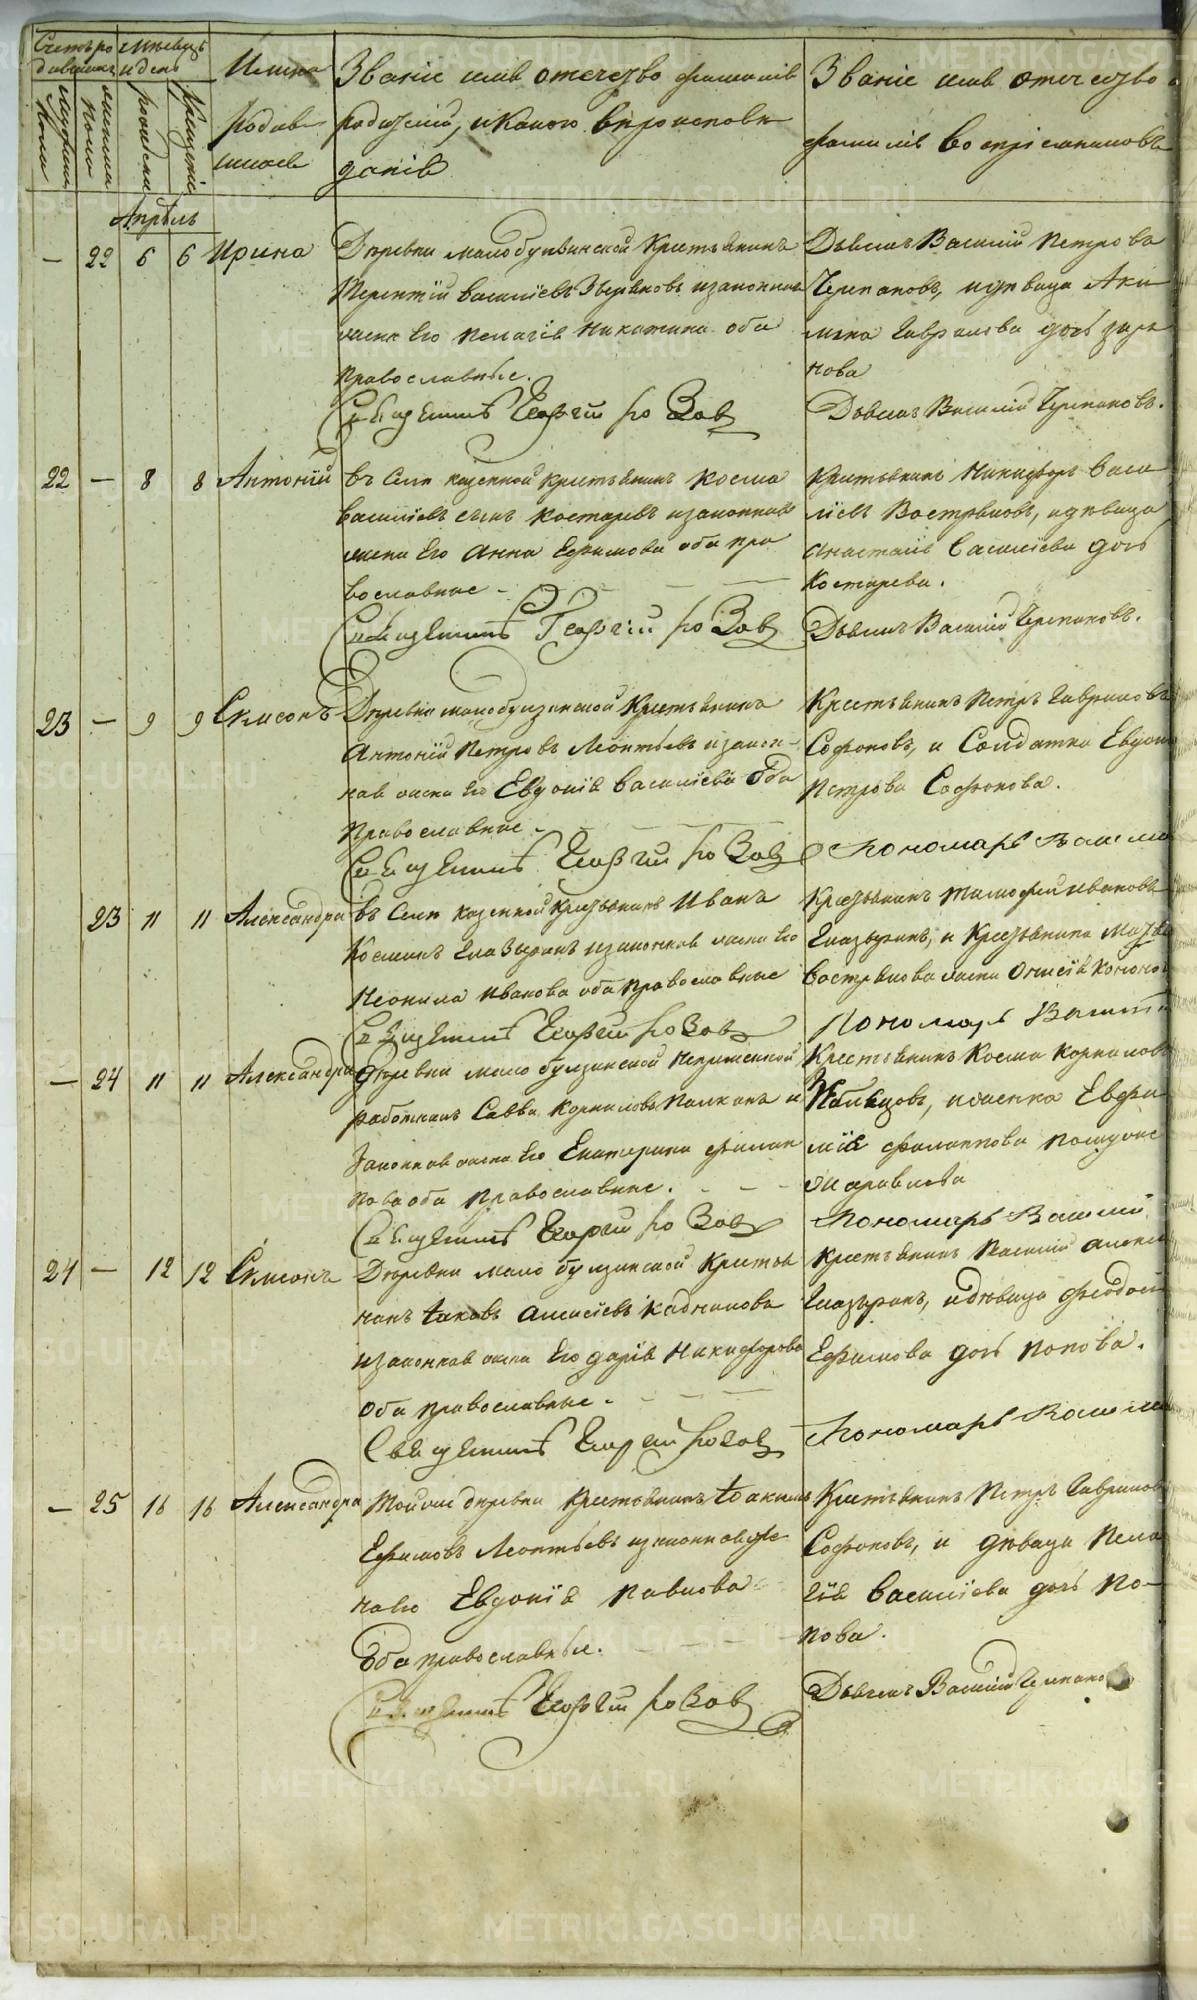 Счетъ ро
дившихся
Мѣсяцъ
и день
Имена
родив
шихся
Званіе имя отечество фамилія
родителей, и какого вѣроисповѣ
данія
Званіе имя отечество
фамилія воспріемниковъ
мужеска
пола
женска
пола
рожденія
крещенія
Апрѣль
— 22 6 6 Ирина
Деревни малобугзинской Крестьянинъ
Терентій Василіевъ Звѣревъ изаконная
жена Его Пелагія Никитина оба
православные.
Священникъ Георгій
Дьячекъ Василій Петровъ
Черепановъ, идѣвица Аки
лина Гаврилова дочь
нова
Дьячекъ Василій Черепановъ.
22 — 8 8 Антоній
въ Селѣ казенной крестьянинъ Косма
Василіевъ сынъ Костаревъ изаконная
жена Его Анна Ефимова оба пра
вославные —
Священникъ Георгій
Крестьянинъ Никифоръ Васи
ліевъ Востряковъ, идѣвица
Анастасія Василіева дочь
Костарева.
Дьячекъ Василій Черепановъ.
23 — 9 9 Симеонъ
Деревни малобугзинской Крестьянинъ
Антоній Петровъ Леонтьевъ изакон-
ная жена Его Евдокія Василіева оба
православные —
Священникъ Георгій
Крестьянинъ Петръ Гавриловъ
Софоновъ, и Солдатка Евдок
Петрова Софонова.
Пономарь Васили
23 11 11 Александра
въ Селѣ казенной Крестьянинъ Иванъ
Косминъ Глазыринъ изаконная жена Его
Неонила Иванова оба Православные
Священникъ Георгій
Крестьянинъ Тимофей Ивановъ
Глазыринъ, и Крестьянина
Вострякова жена Анисія
Пономарь Васили
— 24 11 11 Александра
Деревни мало бугзинской Непременной
работникъ Савва Корниловъ Палкинъ и
Законная жена Его Екатерина Филип
пова оба Православные. — —
Священникъ Георгій
Крестьянинъ Косма Корниловъ
иженка Евфи
мія Филиппова
Журавлева
Пономарь Василій
24 — 12 12 Симеонъ
Деревни мало бугзинской Кресть
нинъ Іаковъ Алексіевъ Кадниковъ
изаконная жена Его дарія Никифорова
Оба православные. — —
Священникъ Георгій
Крестьянинъ Василій Алексі
Глазыринъ, идѣвица Феодось
Ефимова дочь Попова.
Пономарь Васили
— 25 16 16 Александра
Тойже деревни Крестьянинъ Іоакимъ
Ефимовъ Леонтьевъ изаконнаяже
наго Евдокія Павлова
Оба православные. — — —
Священникъ Георгій
Крестьянинъ Петръ Гавриловъ
Софоновъ, и дѣвица Пела
гія Василіева дочь По-
пова.
Дьячекъ Василій Черепанов